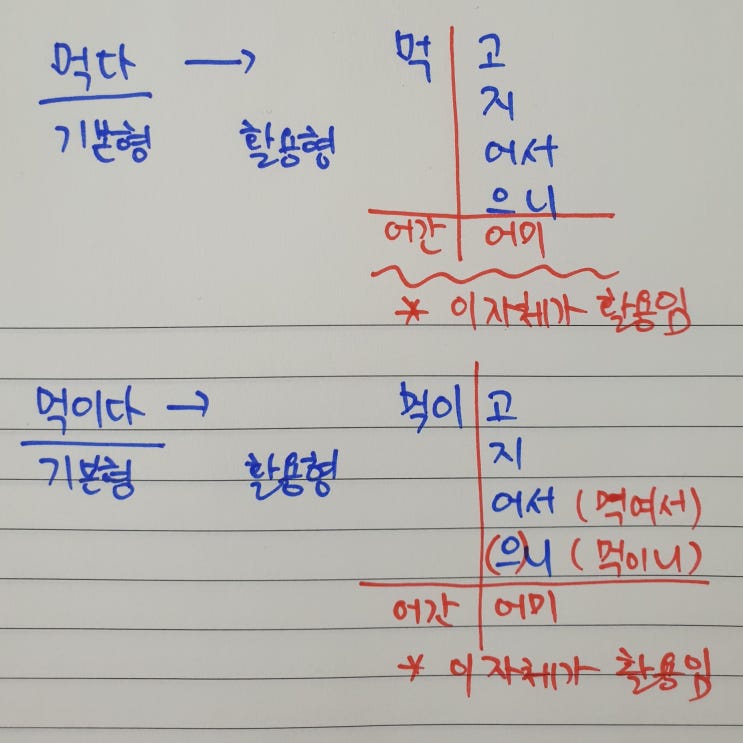 먹다 → 먹 고
지
기본형 활용형 어서
으니
어간 어미
* 이 자체가 활용임
먹이다 → 먹이 고
기본형 활용형 지
어서 (먹여서)
(으)니 (먹이니)
어간 어미
* 이 자체가 활용임